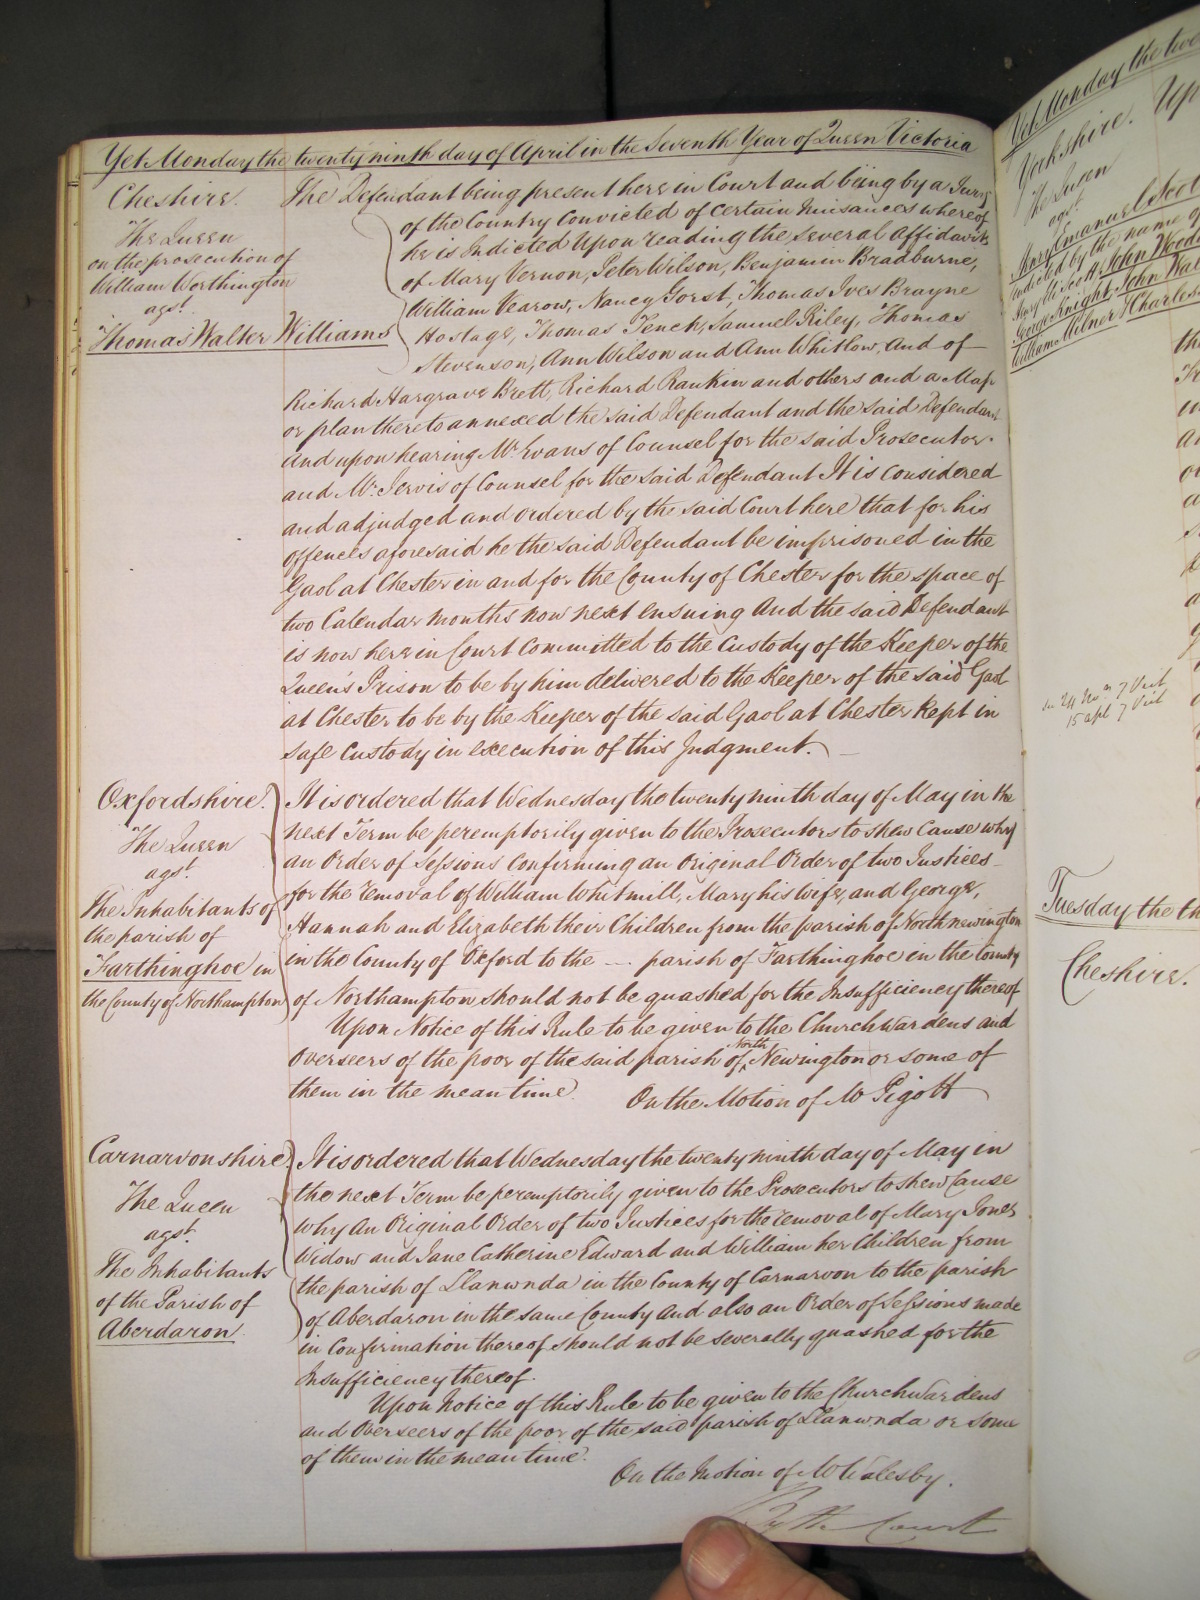 Yet Monday the twenty ninth day of April in the Seventh Year of Queen Victoria
Cheshire.
The Queen
on the prosecution of
William Worthington
agst.
Thomas Walter Williams
The Defendant being present here in Court and being by a Jury
of the Country Convicted of certain nuisances whereof
he is Indicted Upon reading the several Affidavits
of Mary Vernon, Peter Wilson, Benjamin Bradburne,
William Yearow, Nancy Gorst, Thomas Ives Brayne
Hostage, Thomas Tench, Samuel Riley, Thomas
Stevenson, Ann Wilson and Ann Whitlow, And of
Richard Hargrave Brett, Richard Rankin and others and a Map
or plan thereto annexed the said Defendant and the said Defendant
And upon hearing Mr. Evans of Counsel for the said Prosecutor
and Mr. Jervis of Counsel for the said Defendant It is considered
and adjudged and ordered by the said Court here that for his
offences aforesaid he the said Defendant be imprisoned in the
Gaol at Chester in and for the County of Chester for the space of
two Calendar months now next ensuing And the said Defendant
is now here in Court Committed to the Custody of the Keeper of the
Queen's Prison to be by him delivered to the Keeper of the said Gaol
at Chester to be by the Keeper of the said Gaol at Chester kept in
safe custody in execution of this Judgment.
Oxfordshire.
The Queen
agst.
The Inhabitants of
the parish of
Farthinghoe in
the County of Northampton
It is ordered that Wednesday the twenty ninth day of May in the
next Term be peremptorily given to the Prosecutors to shew Cause why
an Order of Sessions Confirming an Original Order of two Justices
for the removal of William Whitmill, Mary his wife, and George,
Hannah and Elizabeth their Children from the parish of North newington
in the County of Oxford to the parish of Farthinghoe in the County
of Northampton should not be quashed for the Insufficiency thereof
Upon Notice of this Rule to be given to the Churchwardens and
Overseers of the poor of the said parish of North Newington or some of
them in the mean time
On the Motion of Mr Pigott
Carnarvonshire
The Queen
agst.
The Inhabitants
of the Parish of
Aberdaron.
It is ordered that Wednesday the twenty ninth day of May in
the next Term be peremptorily given to the Prosecutors to shew Cause
why An Original Order of two Justices for the removal of Mary Jones
Widow and Jane Catherine Edward and William her Children from
the parish of Llanwnda in the County of Carnarvon to the parish
of Aberdaron in the same County And also an Order of Sessions made
in Confirmation thereof should not be severally quashed for the
Insufficiency thereof.
Upon Notice of this Rule to be given to the Churchwardens
and Overseers of the poor of the said parish of Llanwnda or some
of them in the mean time.
On the Motion of Mr Walesby.
By the Court
Yet Monday the
Yorkshire.
Up
The Queen
agst.
Mary Emanuel
indicted by the name of
George Knight, John
William Milner & Charles
15 apl 7 Vict
Tuesday the
Cheshire.